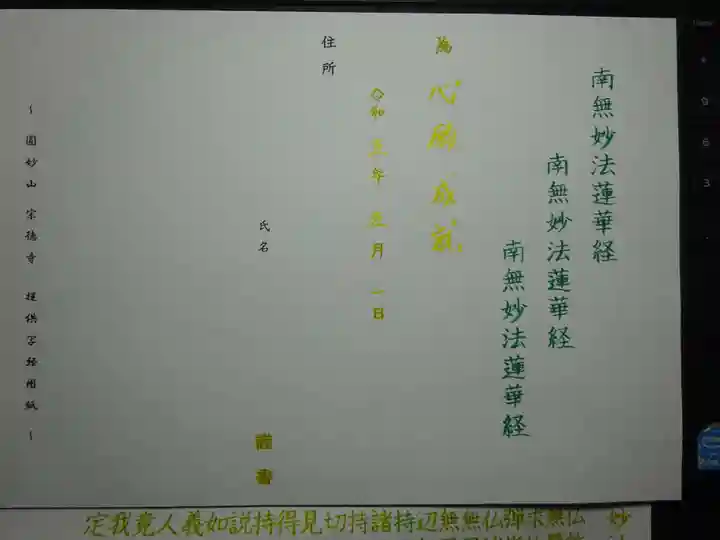 南無妙法蓮華経
南無妙法蓮華経
南無妙法蓮華経
為 心願成就
令和 三年 三月 一日
住所
氏名
謹書
～ 圓妙山 宗徳寺 提供写経用紙 ～
妙
定我竟人義如説得見切持諸持辺無無仏弾求無仏